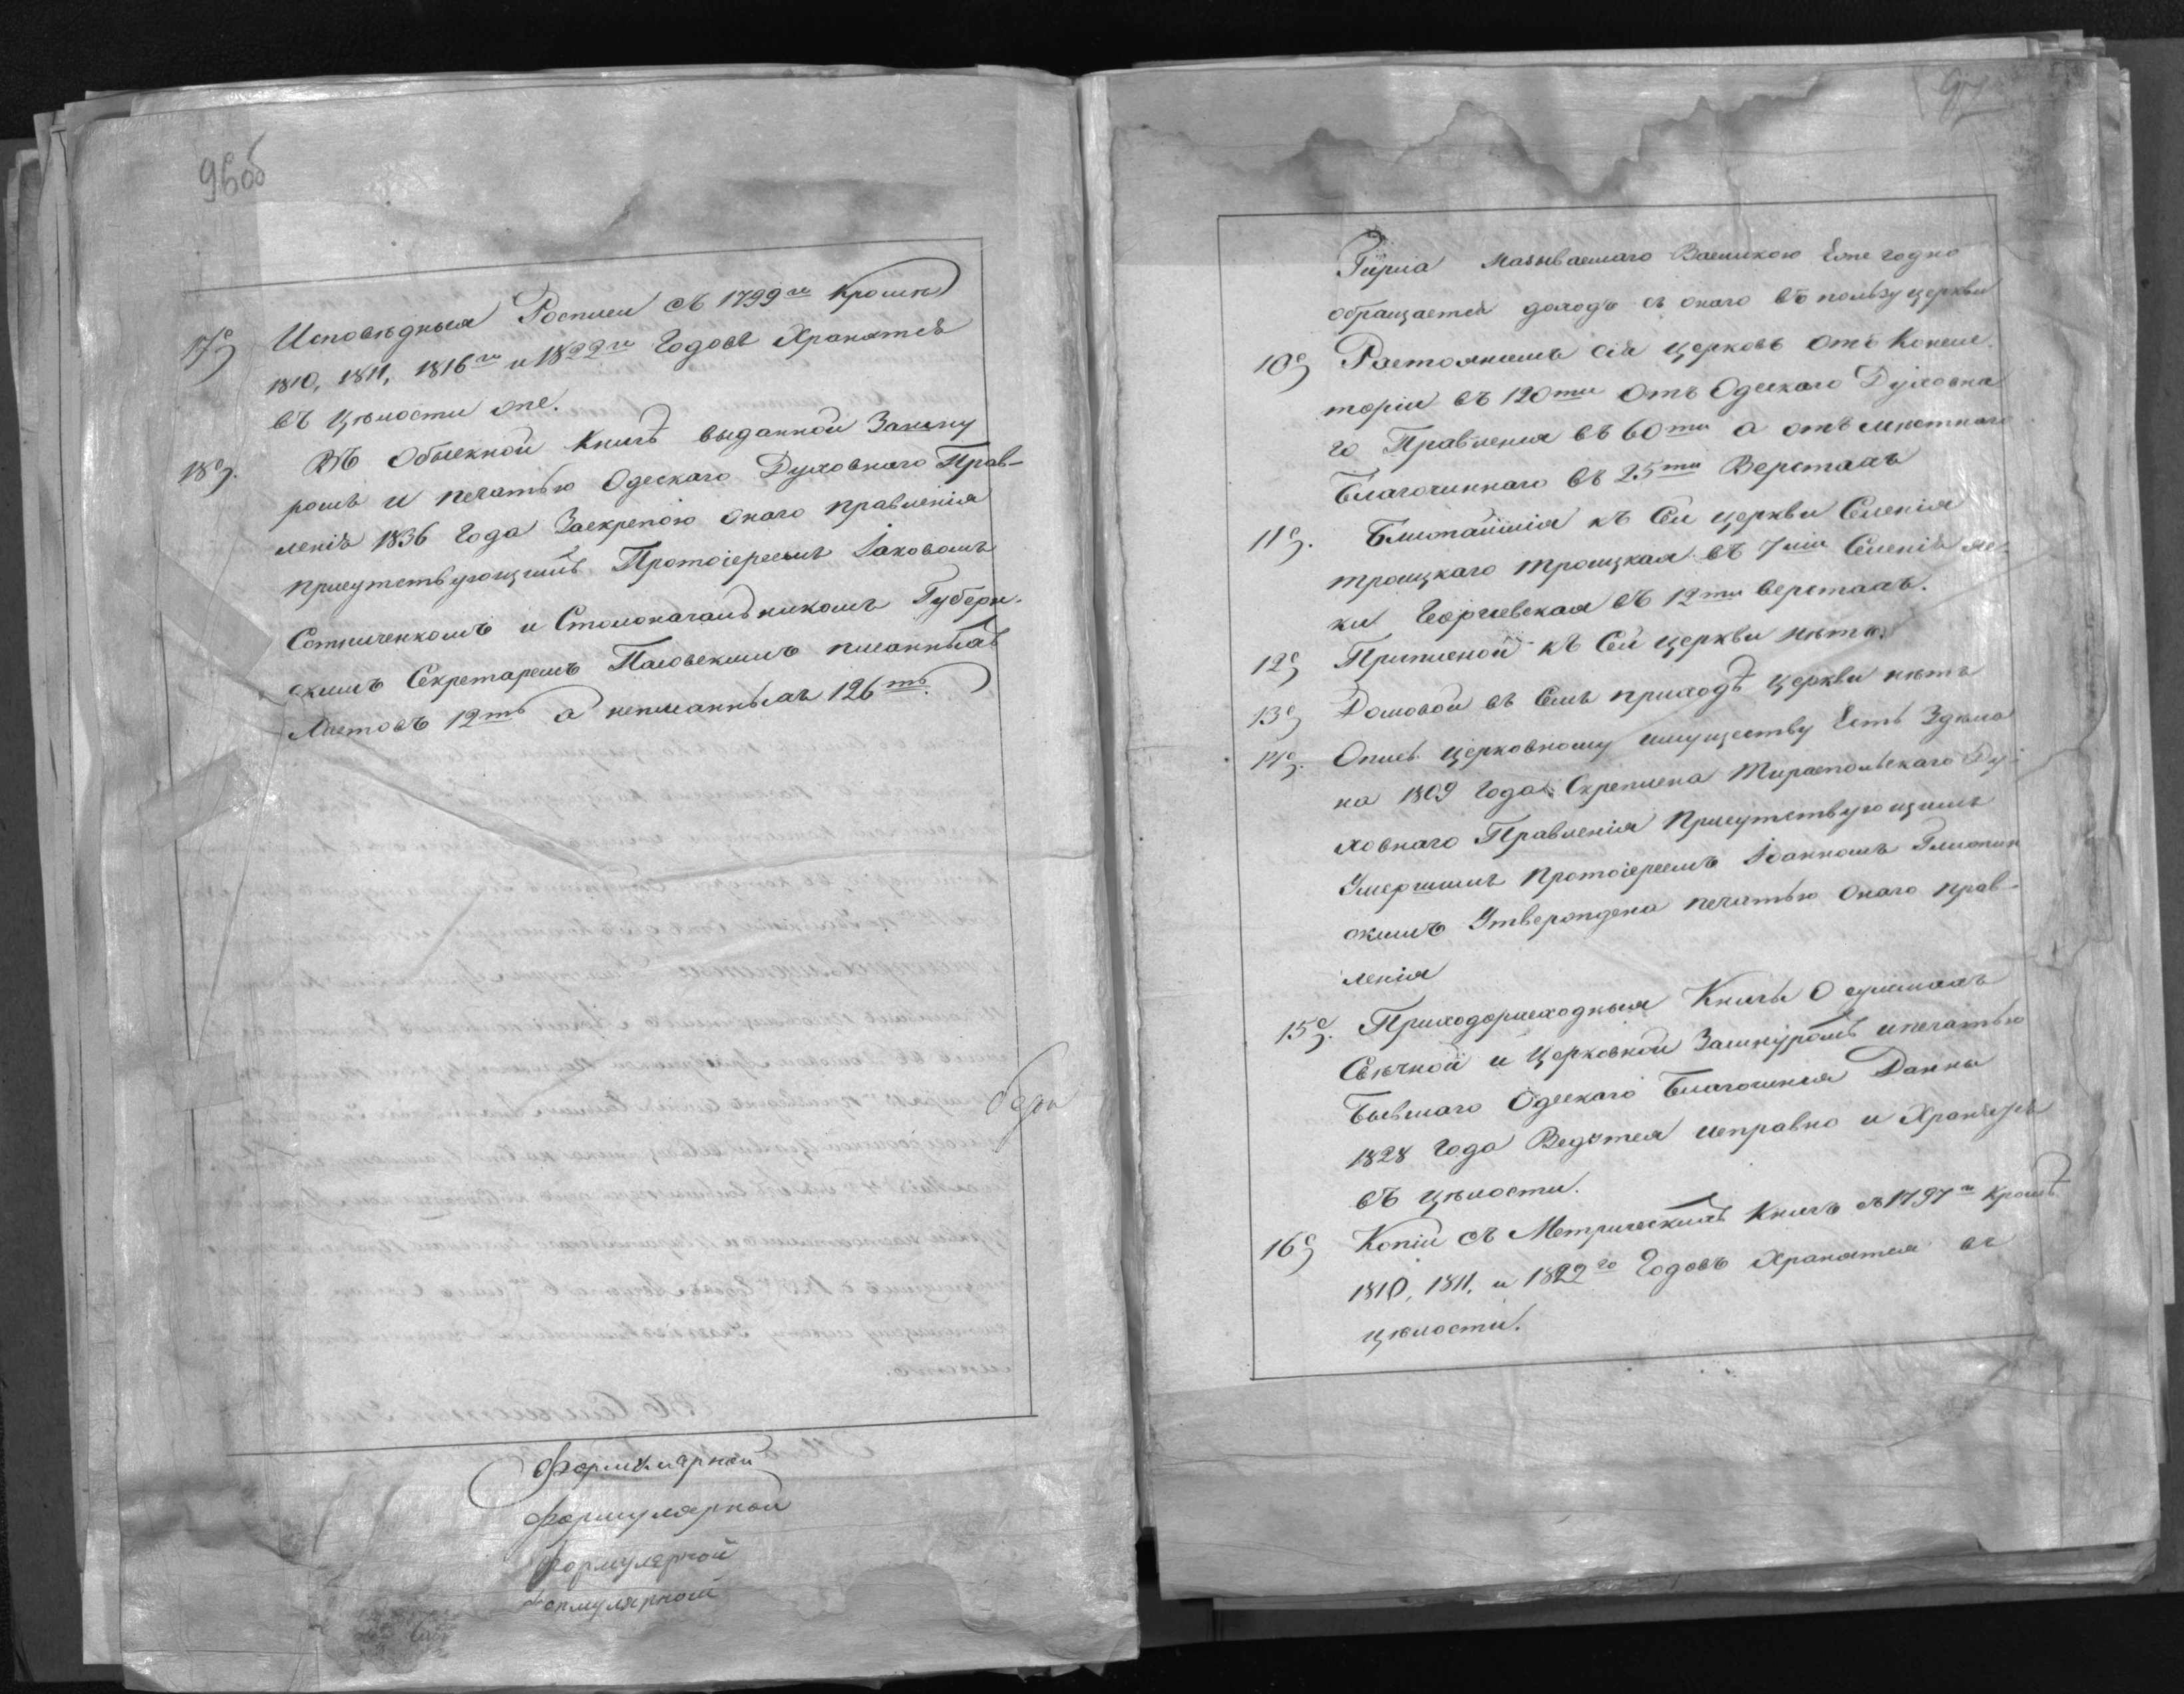 96об
17е) Исповѣдныя Росписи съ 1799го Кромѣ
1810, 1811, 1816го и 1822го Годовъ Хранятся
въ цѣлости
18е). Въ Обыскной Книгѣ выданной За шну
ромъ и печатью Одескаго Духовнаго Прав-
ленія 1836 Года Заскрепою онаго правленія
присутствующимъ Протоіереемъ Іаковомъ
Сотниченкомъ и Столоначальникомъ Губерн-
скимъ Секретаремъ писанныхъ
Листовъ 12ть а неписанныхъ 126ть.
Формулярной
Формулярной
Формулярной
Формулярной
Гирла называемаго Ежегодно
обращается доходъ съ онаго въ пользу церкви
10е) Разстояніемъ сія церковь отъ Консис-
торіи въ 120ти Отъ Одескаго Духовна
го Правленія въ 60ти а отъ мѣстнаго
Благочиннаго въ 25ти Верстахъ
11е). Ближайшія къ Сей церкви Селенія
троицкаго троицкая въ 7ми Селенія яс-
ки Георгіевская въ 12ти верстахъ.
12е) Приписной къ Сей церкви нѣтъ.
13е) Домовой въ Семъ приходѣ церкви нѣтъ
14е). Опись церковному имуществу Есть Здѣла
на 1809 Года Скреплена Тираспольскаго Ду-
ховнаго Правленія Присутствующимъ
Умершимъ Протоіереемъ Іоанномъ
скимъ Утверждена печатью Онаго прав-
ленія
15е). Приходорасходныя Книги О суммахъ
Свѣчной и Церковной Зашнуромъ и печатью
Бывшаго Одескаго Благочинія Данны
1828 Года Ведутся исправно и Хранятся
въ цѣлости.
16е) Копіи съ Метрическихъ Книгъ съ 1797го Кромѣ
1810, 1811, и 1822го Годовъ Хранятся въ
цѣлости.